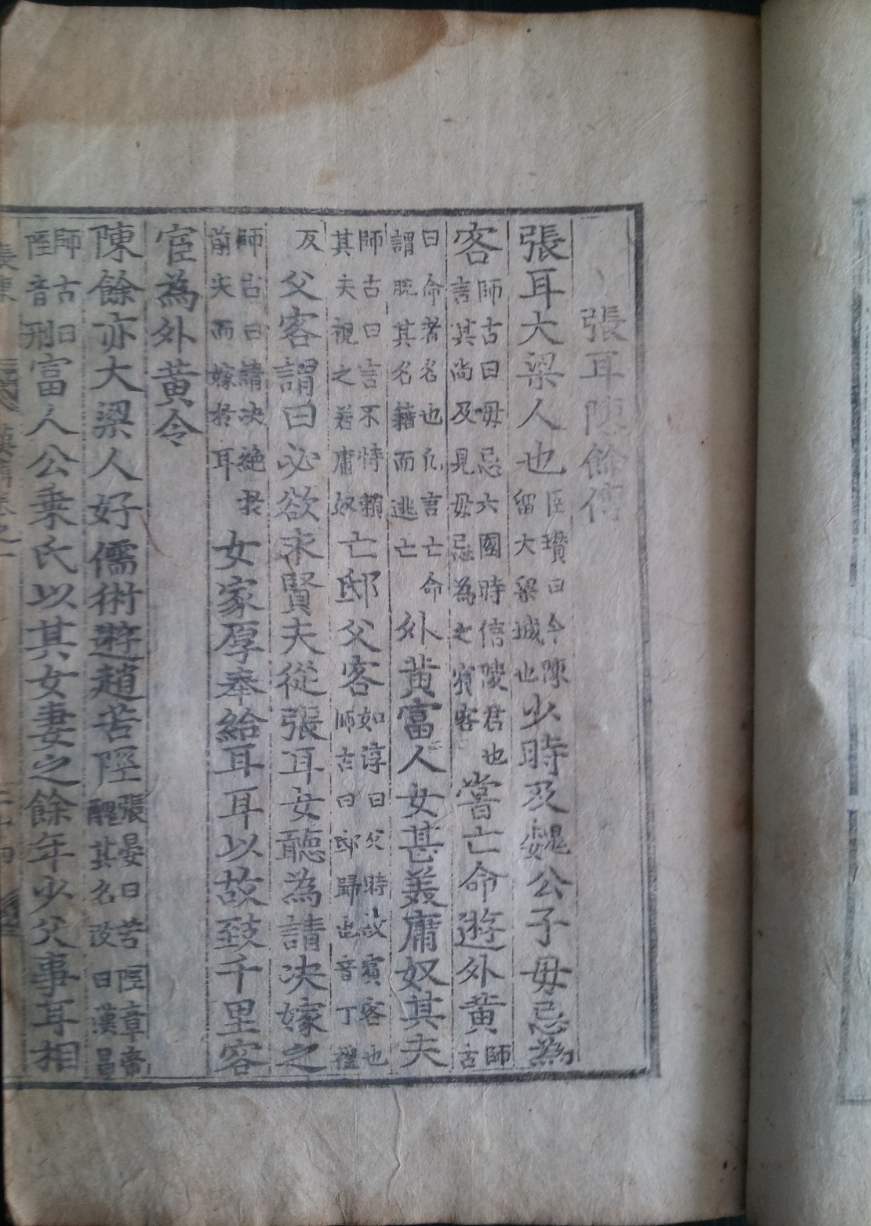 張耳陳餘傳
張耳大梁人也臣瓚曰今陳留大梁城也少時及魏公子毋忌為
客師古曰毋忌六國時信陵君也言其尚及見毋忌為之賓客嘗亡命遊外黃師古
曰命者名也凡言亡命謂脫其名籍而逃亡外黃富人女甚美庸奴其夫
師古曰言不恃賴其夫視之若庸奴亡邸父客如淳曰父時故賓客也師古曰邸歸也音丁禮
反父客謂曰必欲求賢夫從張耳女聽為請決嫁之
師古曰請決絕於前夫而嫁於耳女家厚奉給耳耳以故致千里客
宦為外黃令
陳餘亦大梁人好儒術遊趙苦陘張晏曰苦陘章帝醜其名改曰漢昌
師古曰陘音刑富人公乘氏以其女妻之餘年少父事耳相